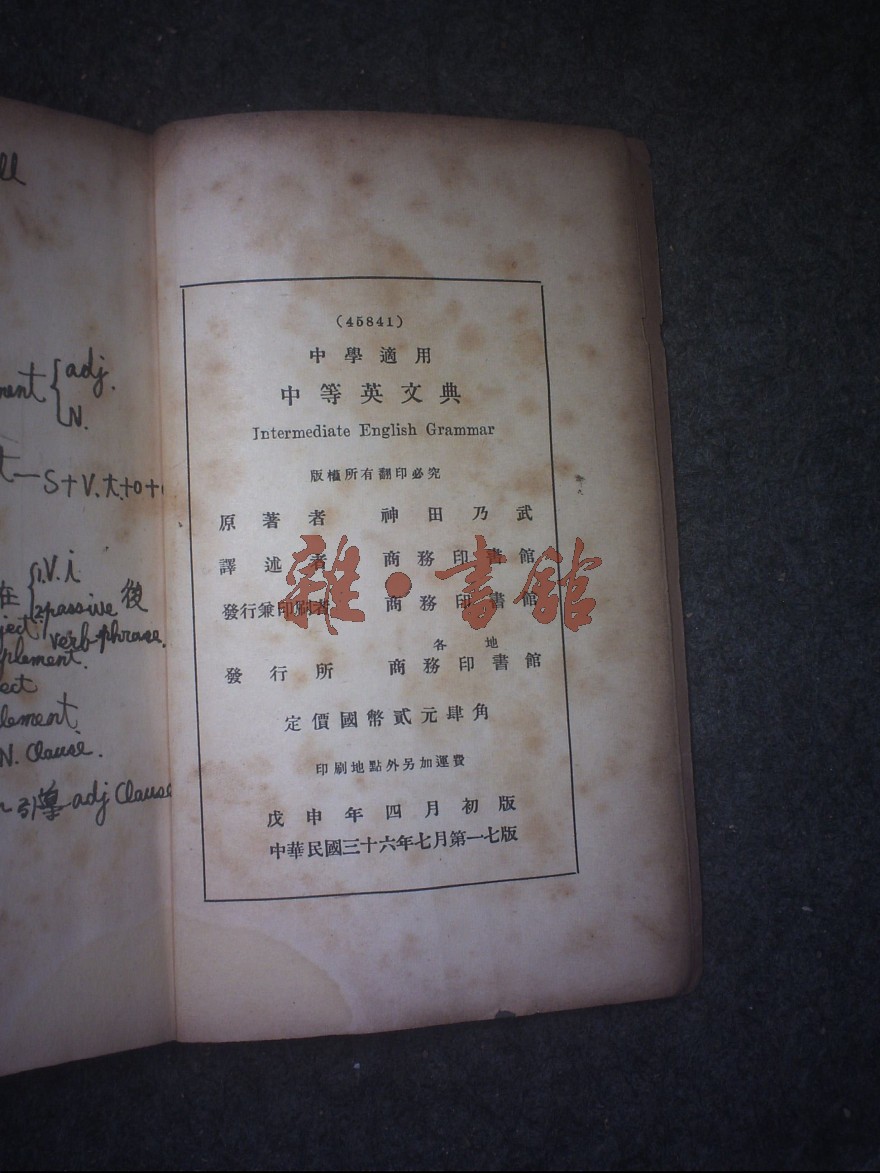 ll
ment { adj.
N.
t—S+V.t.+o+
在 { 1.V.i 後
2passive
ject verb-phrase.
plement.
ect
lement
N. Clause.
引導 adj Clause
(45841)
中學適用
中等英文典
Intermediate English Grammar
版權所有翻印必究
原著者 神田乃武
譯述者 商務印書館
發行兼印刷者 商務印書館
各地
發行所 商務印書館
定價國幣貳元肆角
印刷地點外另加運費
戊申年四月初版
中華民國三十六年七月第一七版
雜·書館